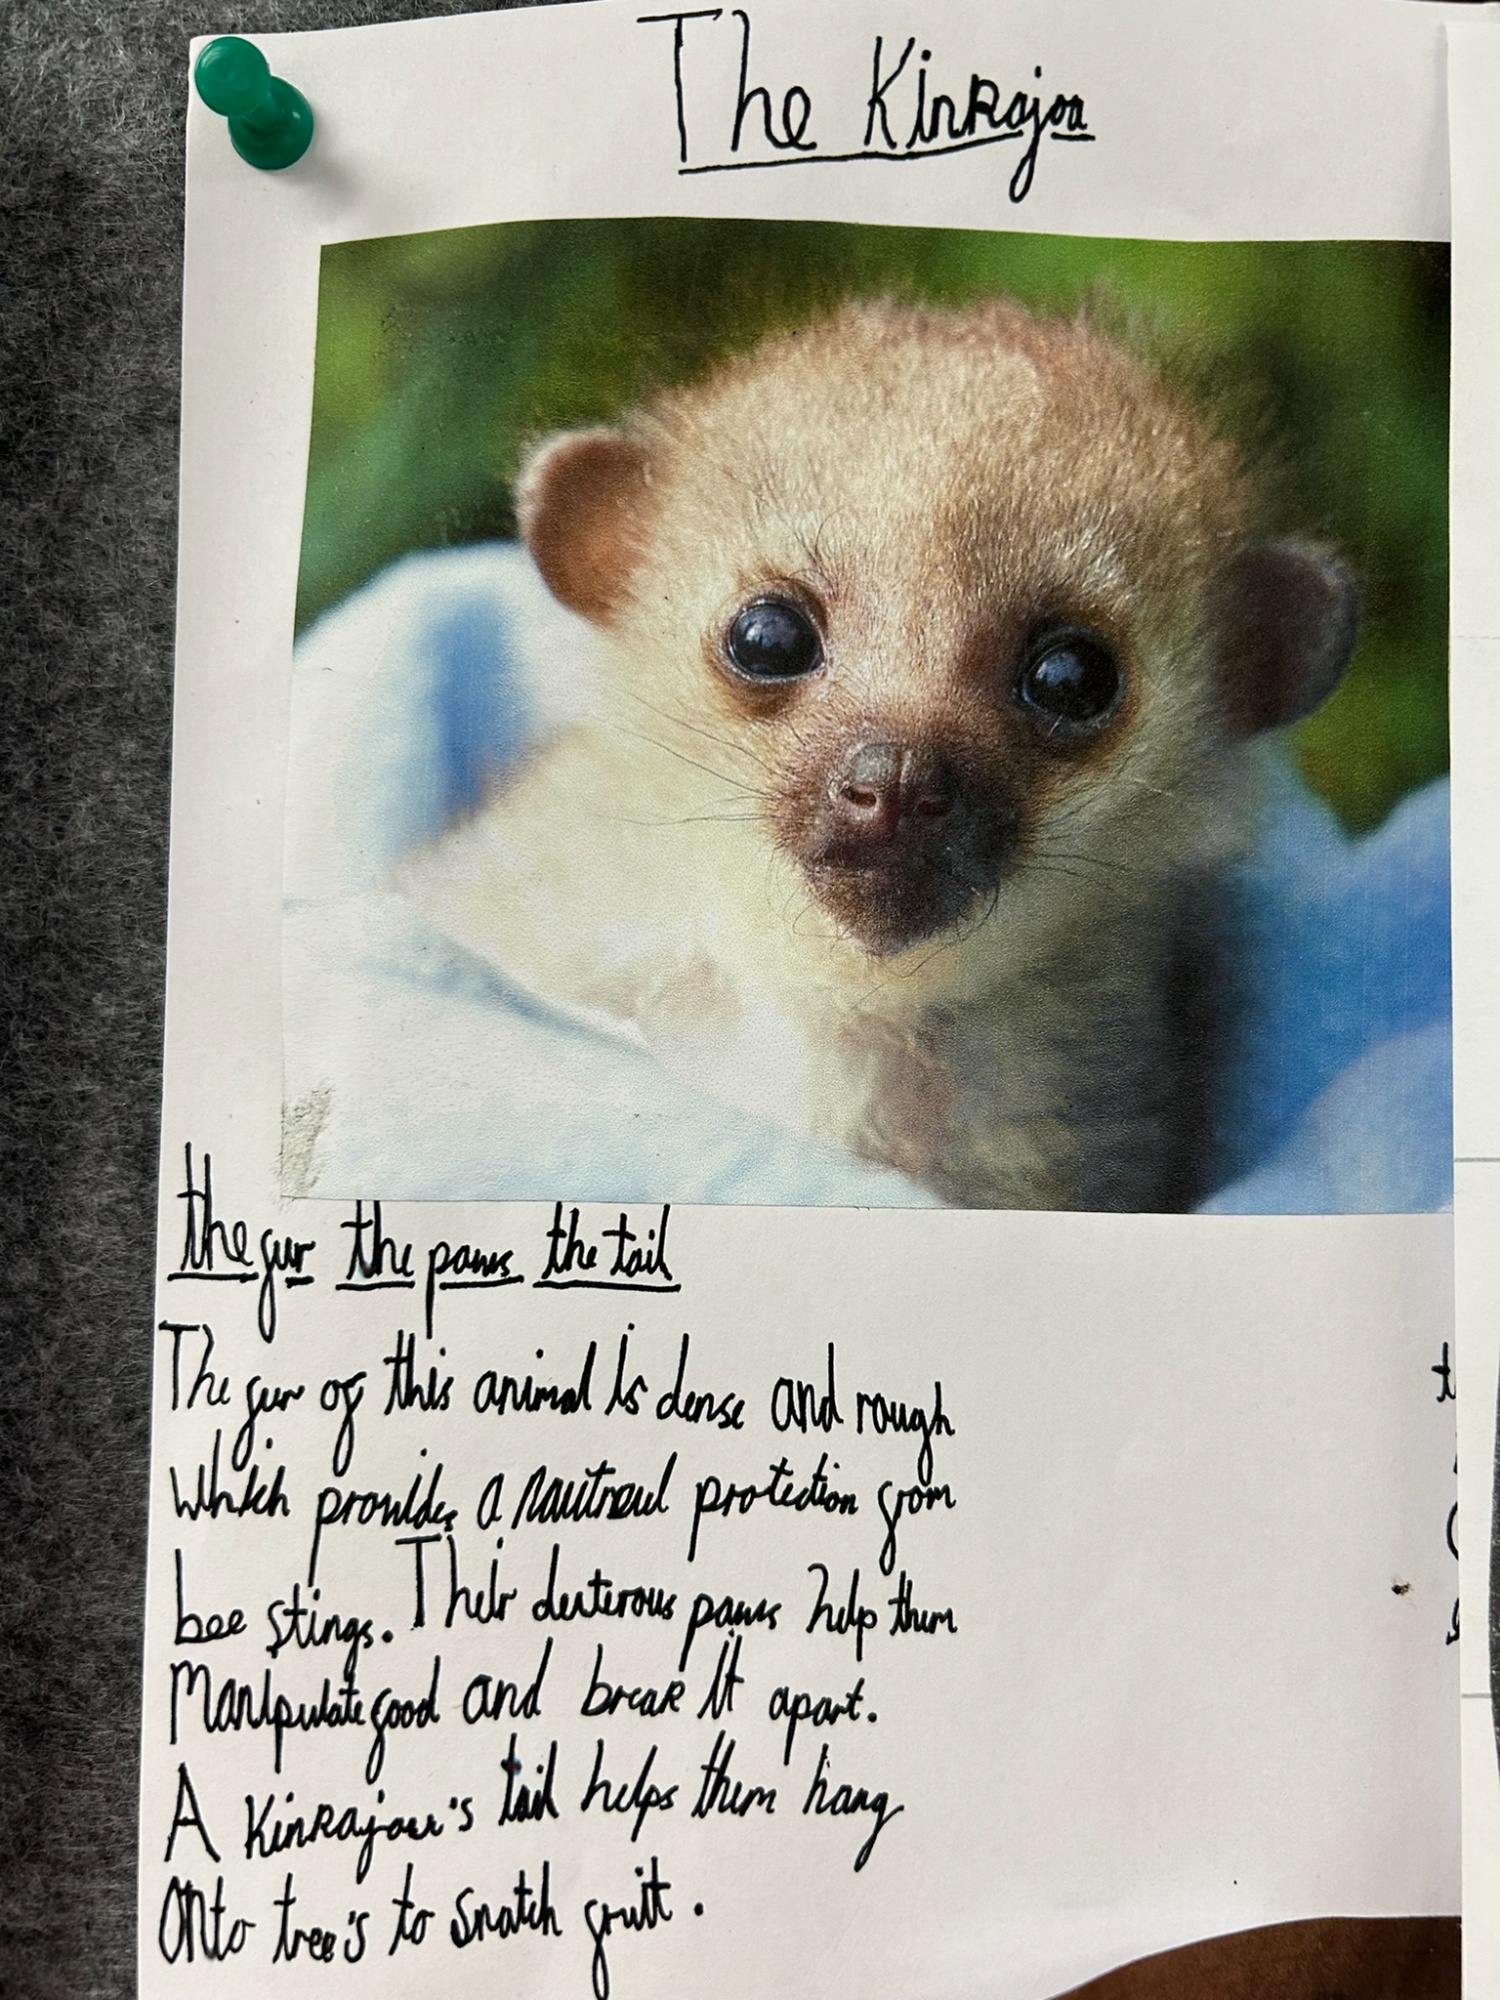 The Kinkajoa
the fur the paws the tail
The fur of this animal is dense and rough
which provides a nautreul protection from
bee stings. Their dexterous paws help them
Manipulate food and break it apart.
A Kinkajou's tail helps them hang
onto tree's to snatch fruit.